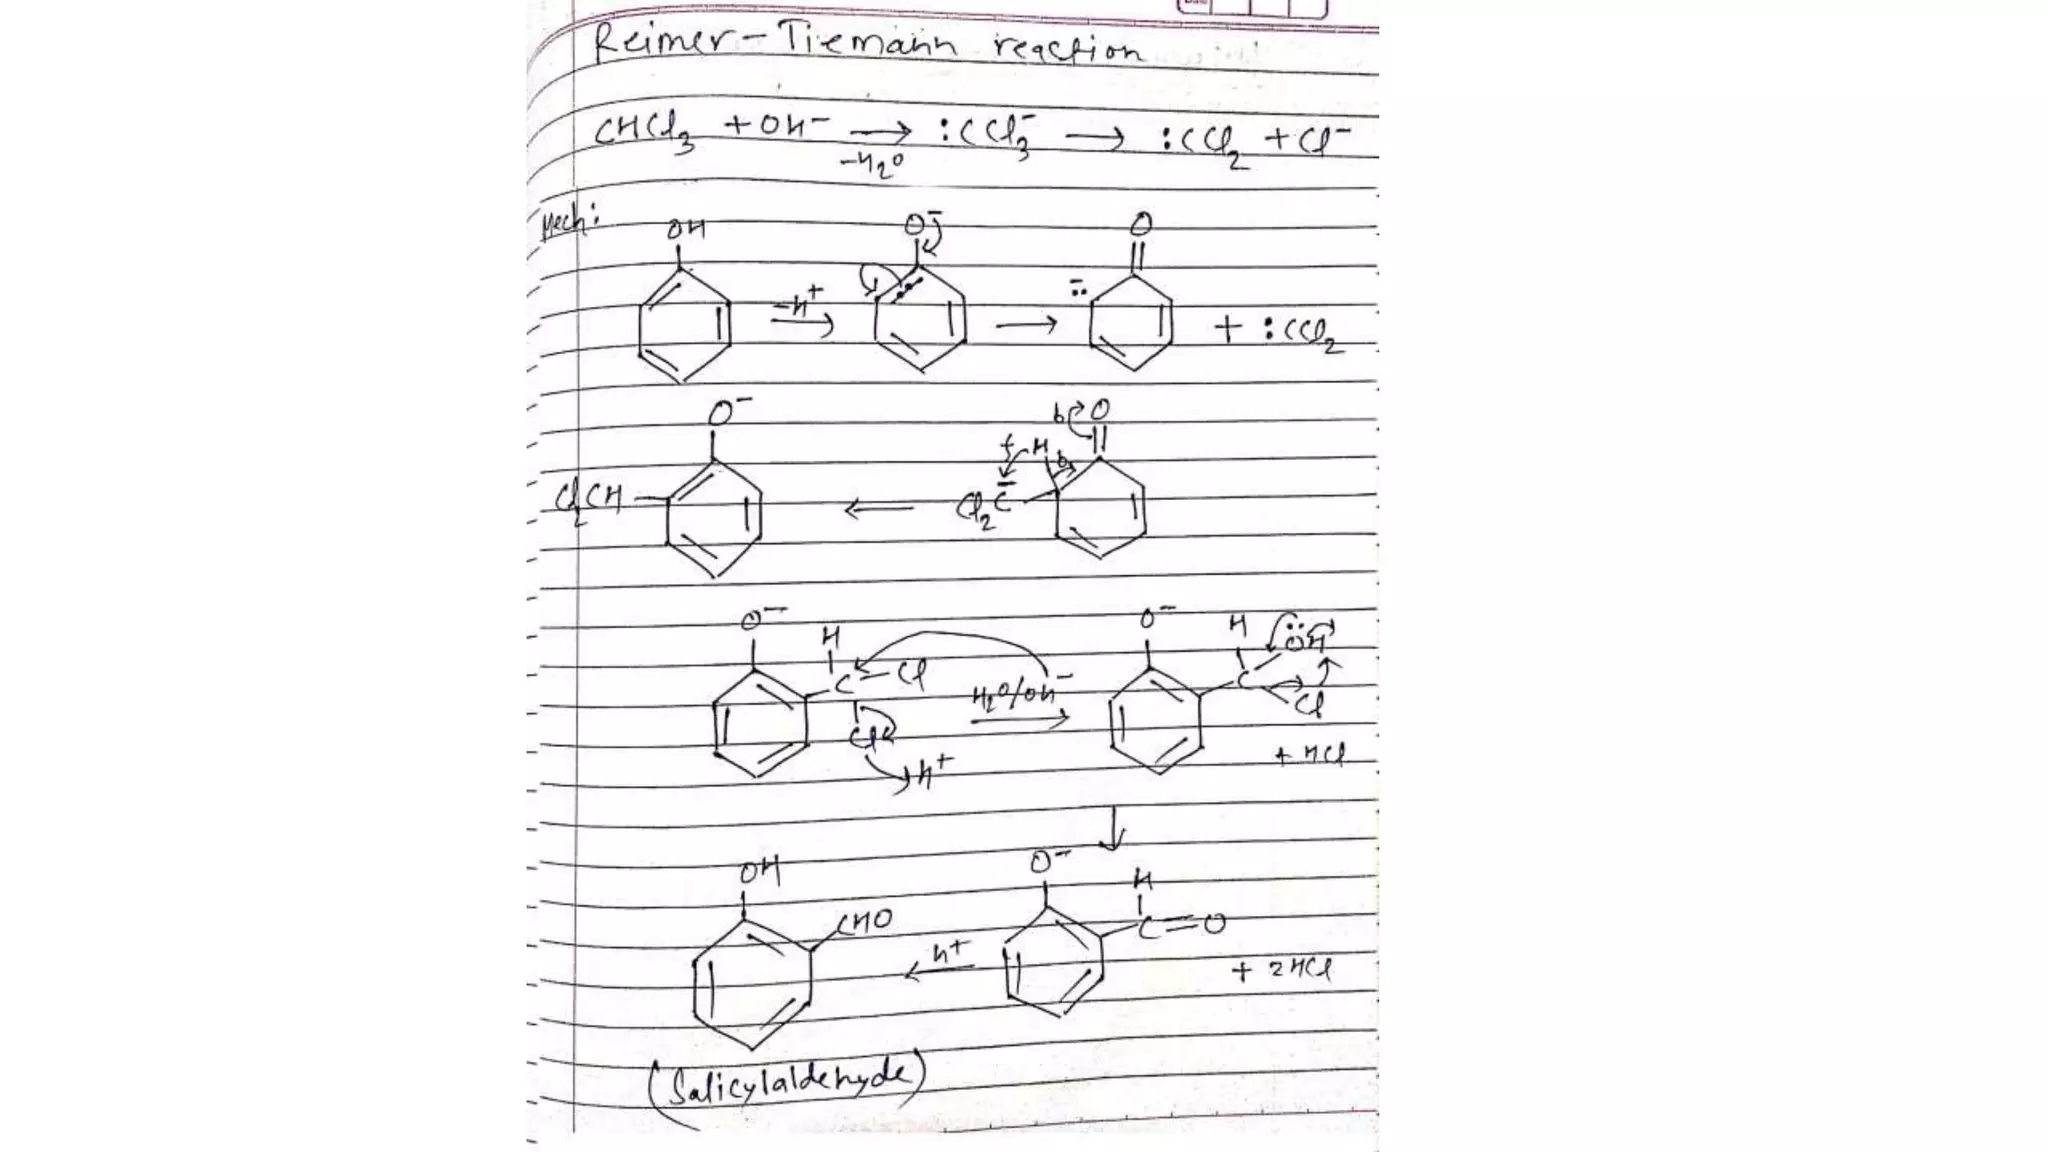 Reimer-Tiemann reaction
CHCl3 + OH- → :CCl3- → :CCl2 + Cl-
-H2O
Mech:
OH O- O
-H+ → → + :CCl2
O- b O
f H b
Cl2CH ← Cl2C-
O- H C-Cl Cl H+
H2O/OH-
O- H C ÖH Cl
+ HCl
OH CHO
H+
O- H C=O
+ 2HCl
(Salicylaldehyde)